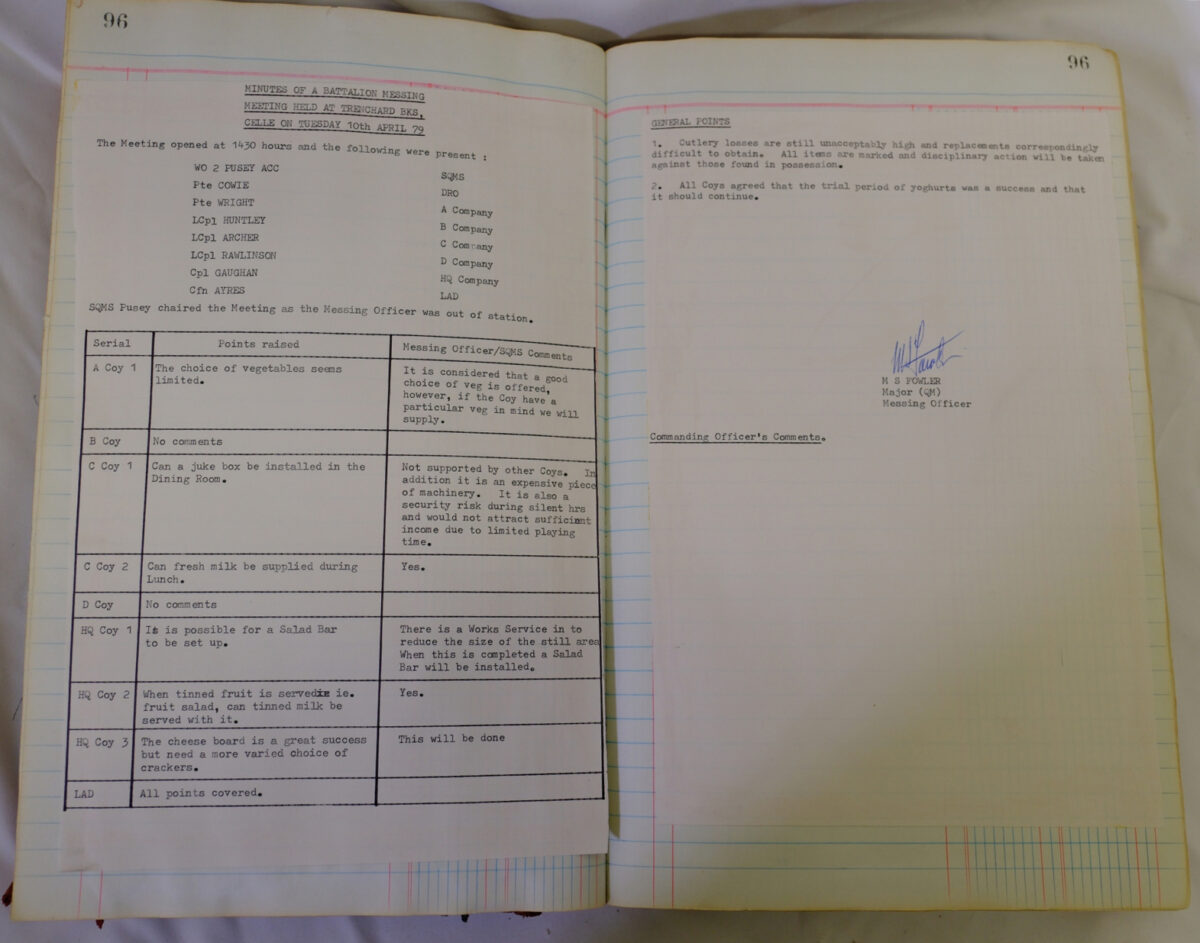 96
MINUTES OF A BATTALION MESSING
MEETING HELD AT TRENCHARD BKS,
CELLE ON TUESDAY 10th APRIL 79
The Meeting opened at 1430 hours and the following were present :
WO 2 PUSEY ACC SQMS
Pte COWIE DRO
Pte WRIGHT A Company
LCpl HUNTLEY B Company
LCpl ARCHER C Company
LCpl RAWLINSON D Company
Cpl GAUGHAN HQ Company
Cfn AYRES LAD
SQMS Pusey chaired the Meeting as the Messing Officer was out of station.
Serial Points raised Messing Officer/SQMS Comments
A Coy 1 The choice of vegetables seems
limited.
It is considered that a good
choice of veg is offered,
however, if the Coy have a
particular veg in mind we will
supply.
B Coy No comments
C Coy 1 Can a juke box be installed in the
Dining Room.
Not supported by other Coys. In
addition it is an expensive piece
of machinery. It is also a
security risk during silent hrs
and would not attract sufficient
income due to limited playing
time.
C Coy 2 Can fresh milk be supplied during
Lunch.
Yes.
D Coy No comments
HQ Coy 1 Is is possible for a Salad Bar
to be set up.
There is a Works Service in to
reduce the size of the still area
When this is completed a Salad
Bar will be installed.
HQ Coy 2 When tinned fruit is served ie.
fruit salad, can tinned milk be
served with it.
Yes.
HQ Coy 3 The cheese board is a great success
but need a more varied choice of
crackers.
This will be done
LAD All points covered.
96
GENERAL POINTS
1. Cutlery losses are still unacceptably high and replacements correspondingly
difficult to obtain. All items are marked and disciplinary action will be taken
against those found in possession.
2. All Coys agreed that the trial period of yoghurts was a success and that
it should continue.
M S FOWLER
Major (QM)
Messing Officer
Commanding Officer's Comments.